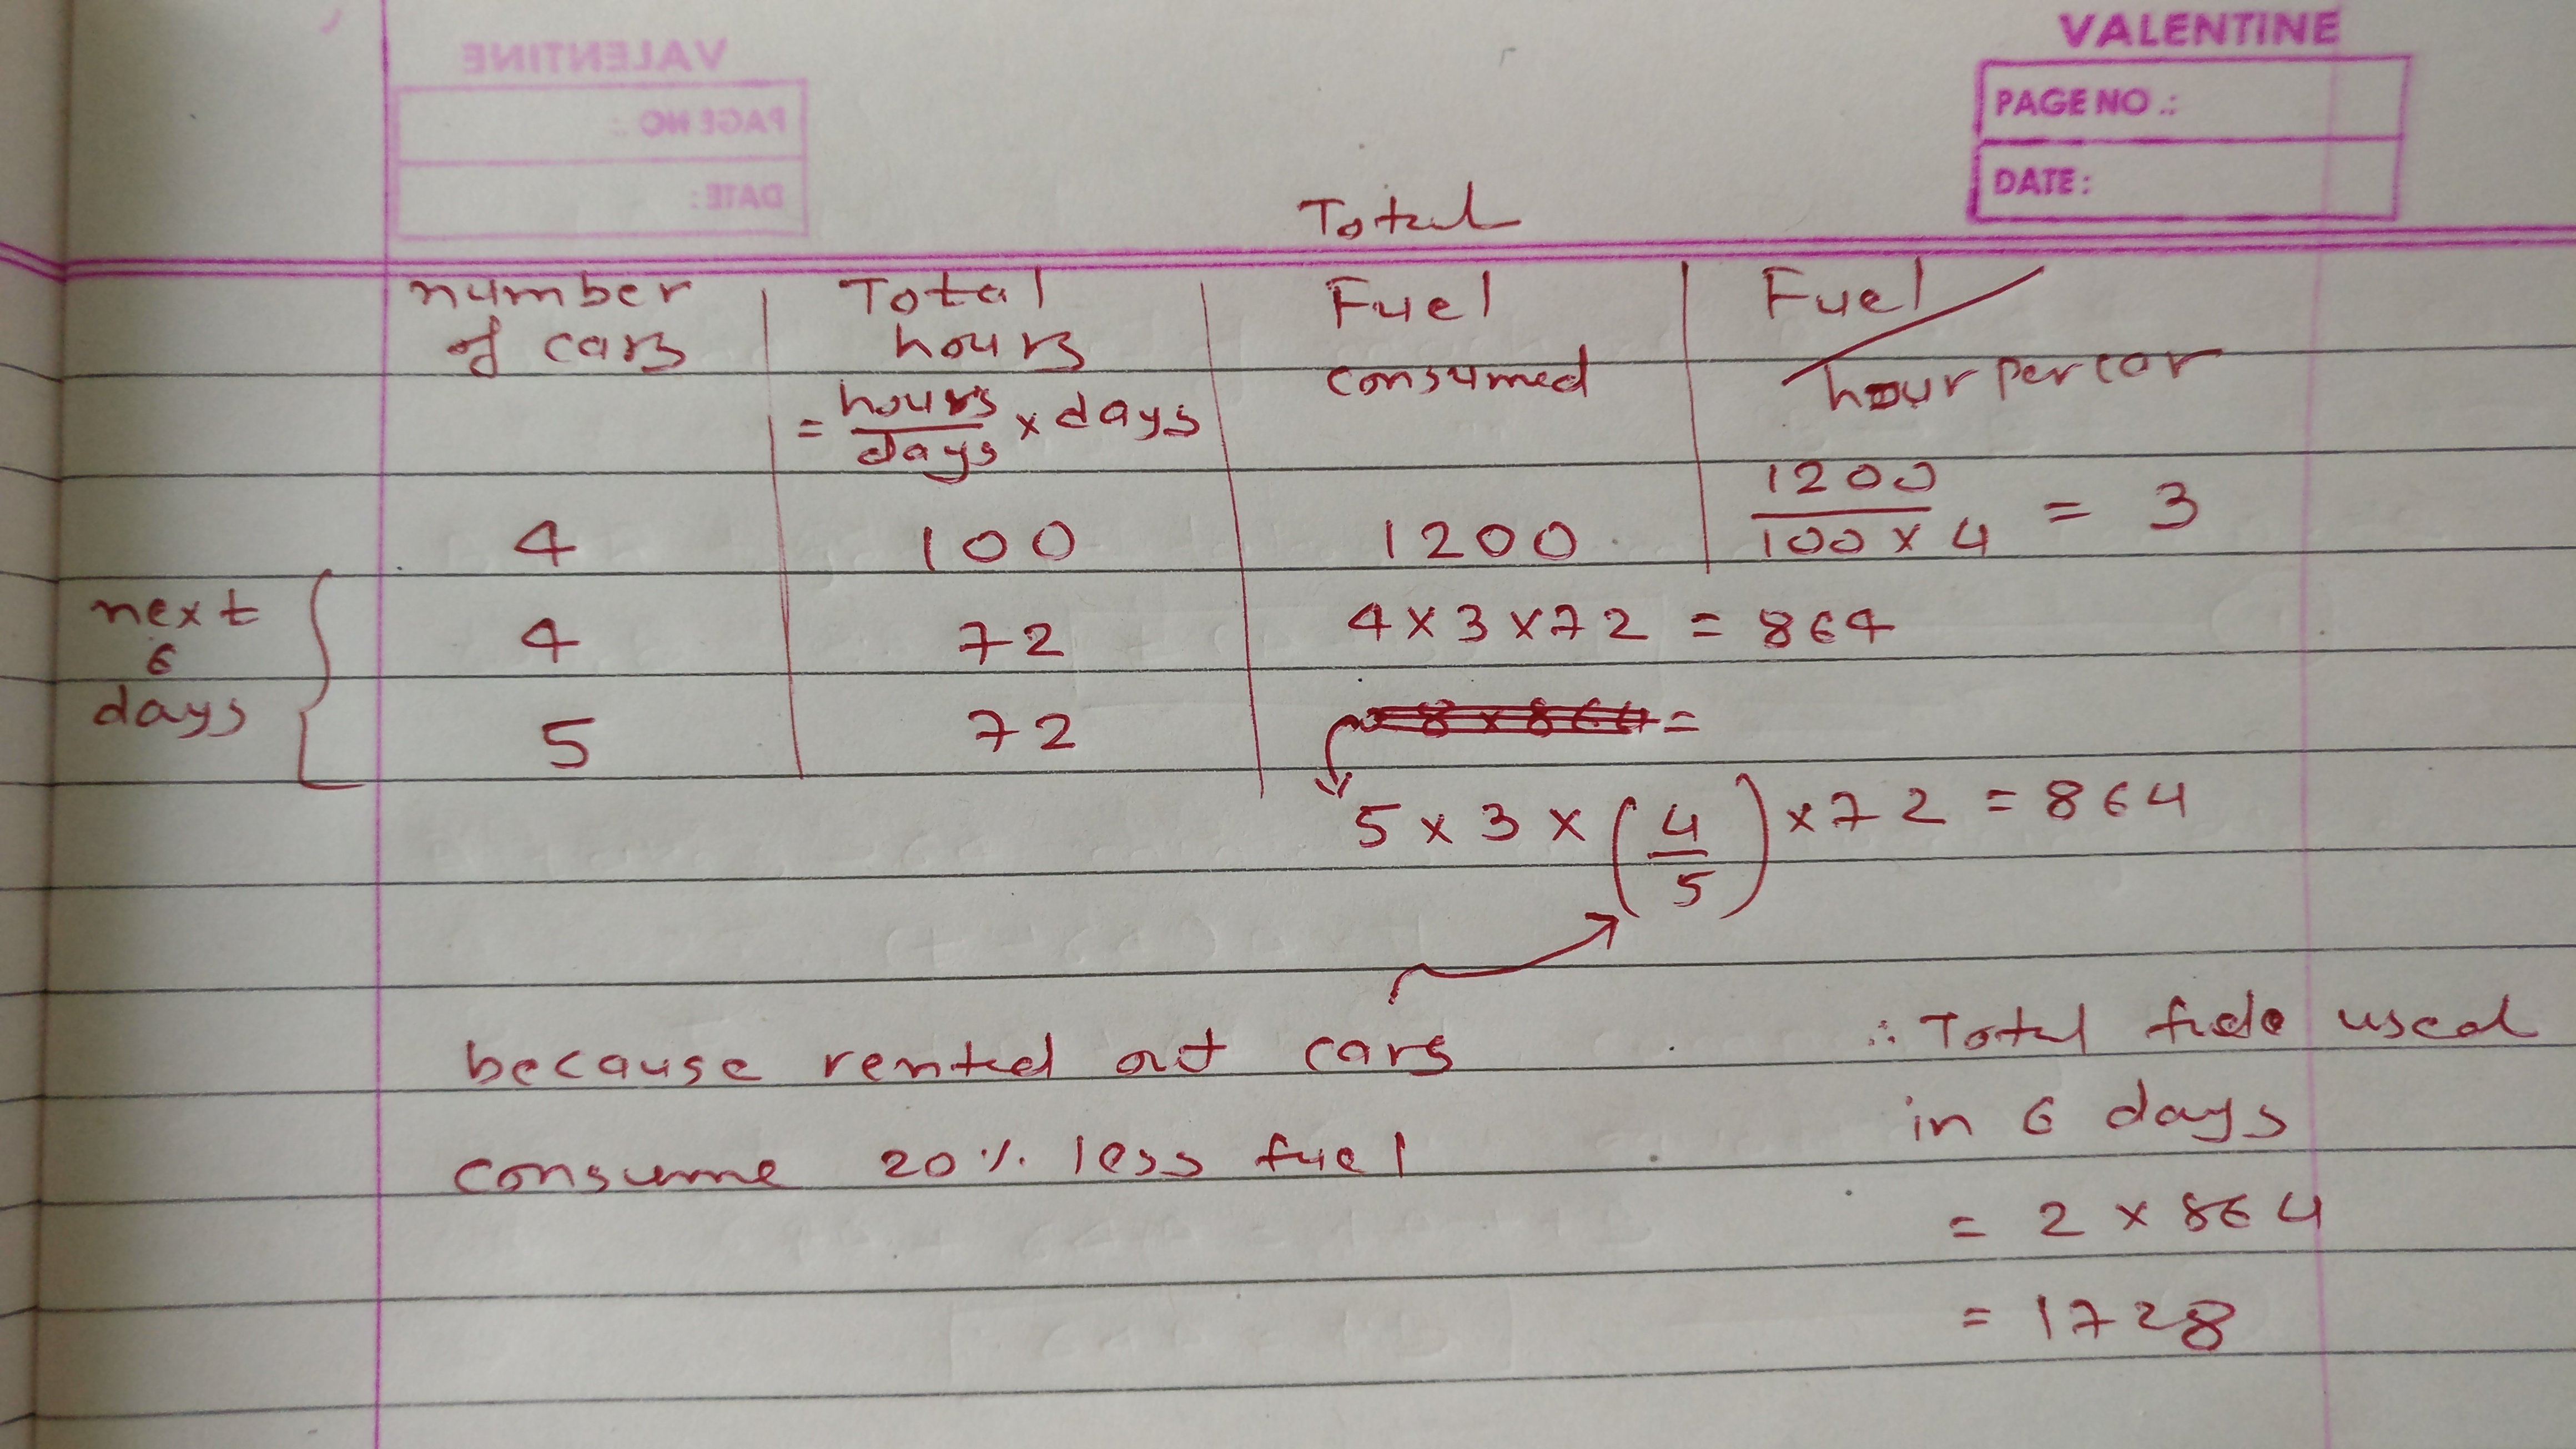 VALENTINE
PAGE NO.:
DATE:
VALENTINE
PAGE NO.:
DATE:
number of cars | Total hours = hours/days × days | Total Fuel consumed | Fuel/hour per car
4 | 100 | 1200 | 1200/100 × 4 = 3
next 6 days
4 | 72 | 4 × 3 × 72 = 864
5 | 72 | =
5 × 3 × (4/5) × 72 = 864
because rented out cars
consume 20% less fuel
∴ Total used
in 6 days
= 2 × 864
= 1728